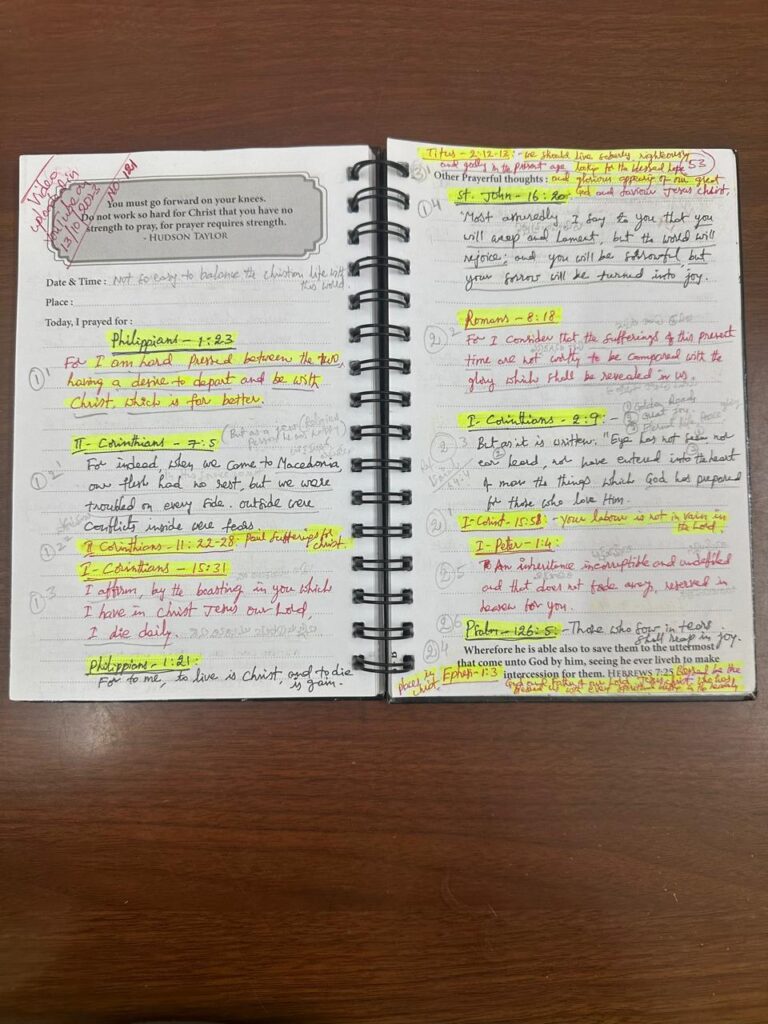 Video
uploaded in
YouTube on
13/10/2023
NO 121
You must go forward on your knees.
Do not work so hard for Christ that you have no
strength to pray, for prayer requires strength.
- HUDSON TAYLOR
Date & Time : Not so easy to balance the Christian life with
this world.
Place :
Today, I prayed for :
Philippians - 1:23
① 1
For I am hard pressed between the two,
having a desire to depart and be with
Christ, which is far better.
II - Corinthians - 7:5
But as a
For indeed, when we came to Macedonia,
our flesh had no rest, but we were
troubled on every side. outside were
conflicts inside were fears.
II Corinthians - 11:22-28- Paul sufferings for
Christ.
I - Corinthians - 15:31
① 3
I affirm, by the boasting in you which
I have in Christ Jesus our Lord,
I die daily.
Philippians - 1:21:
For to me, to live is Christ, and to die
is gain.
Titus - 2:12-13:- we should live soberly righteously
and godly in the present age to the blessed hope
53
Other Prayerful thoughts : and glorious appearing of our great
God and saviour Jesus Christ.
St. John - 16:20
① 4
"Most assuredly I say to you that you
will weep and lament, but the world will
rejoice; and you will be sorrowful but
your sorrow will be turned into joy.
Romans - 8:18
②
For I consider that the sufferings of this present
time are not worthy to be compared with the
glory which shall be revealed in us.
① Golden Roads
I - Corinthians - 2:9:-
② Great joy
But as it is written. "Eye has not seen nor
ear heard, nor have entered into the heart
of man the things which God has prepared
for those who love Him.
I - Corint - 15:58:- your labour is not in vain in
the Lord
I - Peter - 1:4:
To An inheritence incorruptible and undefiled
and that does not fade away, reserved in
heaven for you.
Psalm - 126:5:- Those who sow in tears
shall reap in joy.
Wherefore he is able also to save them to the uttermost
that come unto God by him, seeing he ever liveth to make
intercession for them. HEBREWS 7:25
Ephes - 1:3
Blessed be the
God and father of our Lord Jesus Christ, who has
blessed us with every spiritual